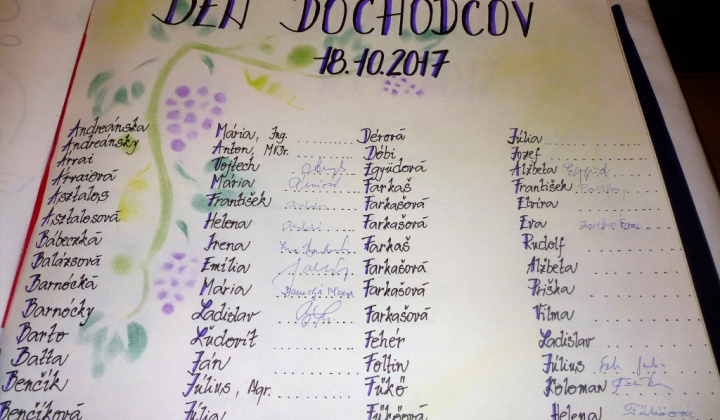 DEŇ DÔCHODCOV
18.10.2017
Andreánska Mária, Ing. Dérová Júlia
Andreánsky Anton, MVDr. Dóbi Jozef
Arrai Vojtech Égyüdová Alžbeta
Arraiová Mária Farkaš František
Asztalos František Farkašová Elvira
Asztalosová Helena Farkašová Eva
Bábeczká Irena Farkaš Rudolf
Balázsová Emília Farkašová Alžbeta
Barnócká Mária Farkašová Priška
Barnócky Ladislav Farkašová Vilma
Barto Ľudovít Fehér Ladislav
Batta Ján Foltin Július
Benčík Július, Agr. Fükö Koloman
Benčíková Júlia Füköová Helena